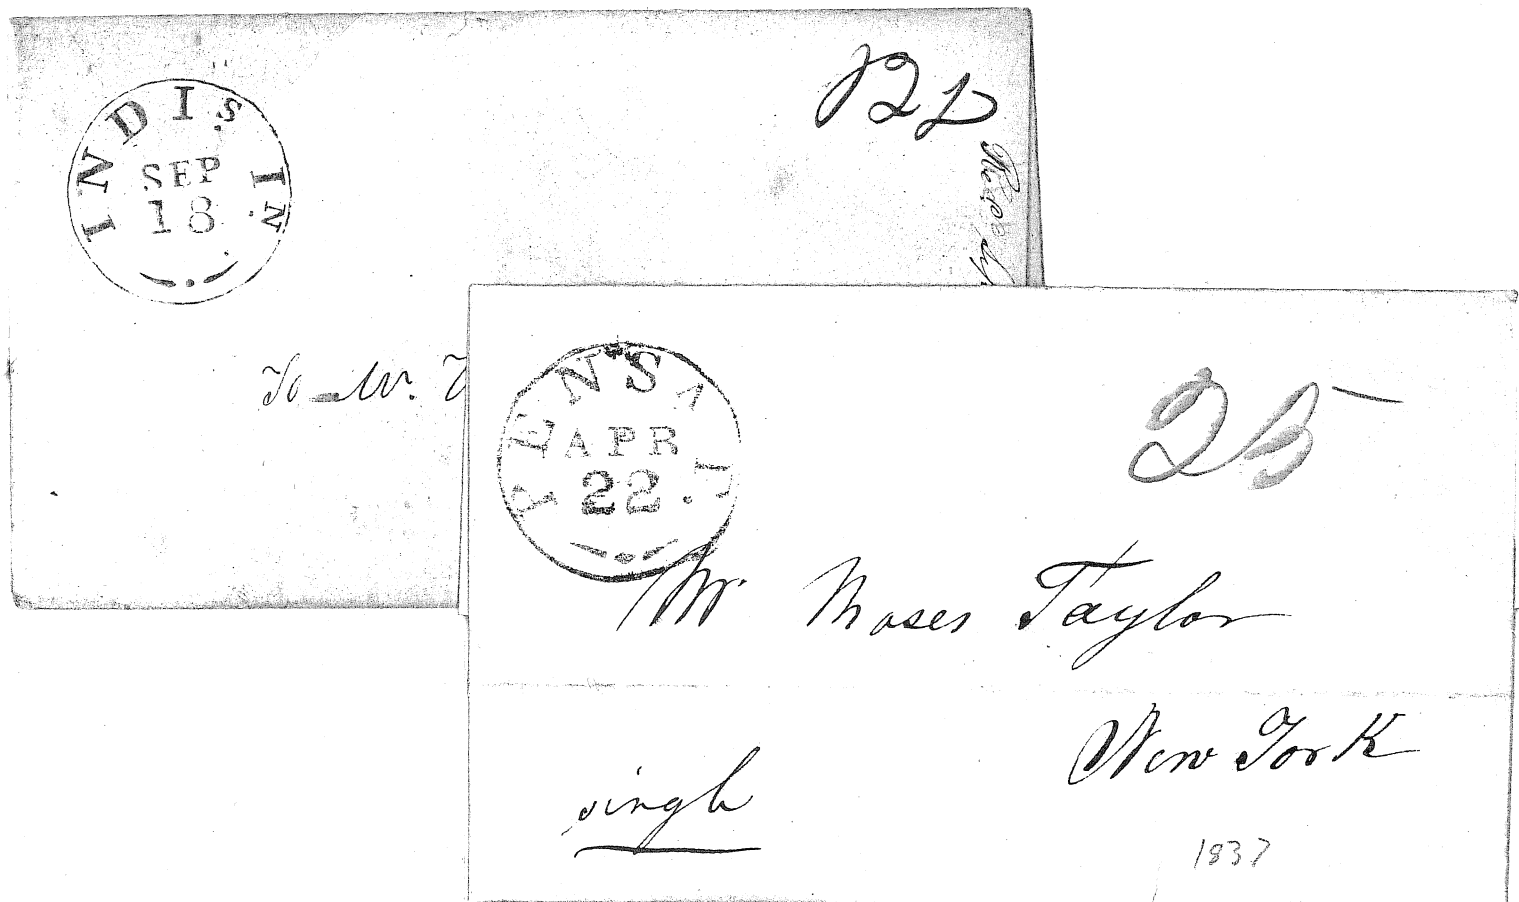 INDIS IN
SEP
18
12½
To Mr.
PENSA
APR
22
25
Mr Moses Taylor
New York
single
1837